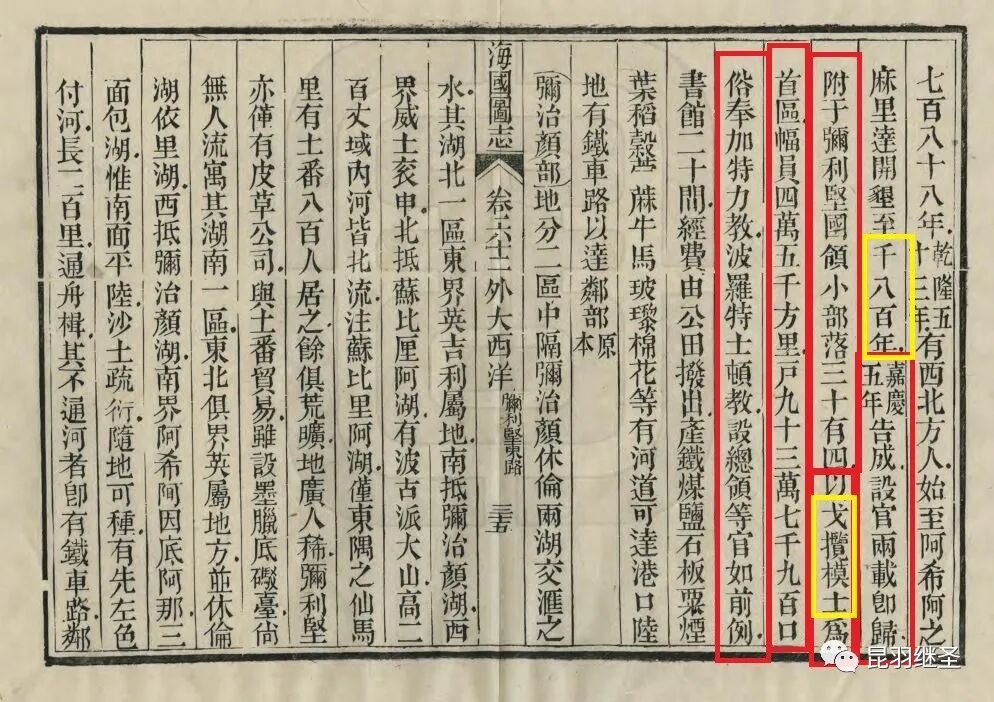 七百八十八年乾隆五十三年有西北方人始至阿希阿之
麻里達開墾至千八百年嘉慶五年告成設官兩載卽歸
附于彌利堅國領小部落三十有四以戈攬模士爲
首區幅員四萬五千方里戸九十三萬七千九百口
俗奉加特力教波羅特士頓教設總領等官如前例
書館二十間經費由公田撥出產鐵煤鹽石板粟煙
葉稻穀苧蔴牛馬玻瓈棉花等有河道可達港口陸
地有鐵車路以達鄰部原本
彌治顏部地分二區中隔彌治顏休倫兩湖交滙之
海國圖志 卷六十二 外大西洋 彌利堅東路 三五
水其湖北一區東界英吉利屬地南抵彌治顏湖西
界威士亥申北抵蘇比厘阿湖有波古派大山高二
百丈域內河皆北流注蘇比里阿湖僅東隅之仙馬
里有土番八百人居之餘俱荒曠地廣人稀彌利堅
亦僅有皮草公司與土番貿易雖設墨臘底礮臺尙
無人流寓其湖南一區東北俱界英屬地方並休倫
湖依里湖西抵彌治顏湖南界阿希阿因底阿那三
面包湖惟南面平陸沙土疏衍隨地可種有先左色
付河長二百里通舟楫其不通河者卽有鐵車路鄰
昆羽继圣